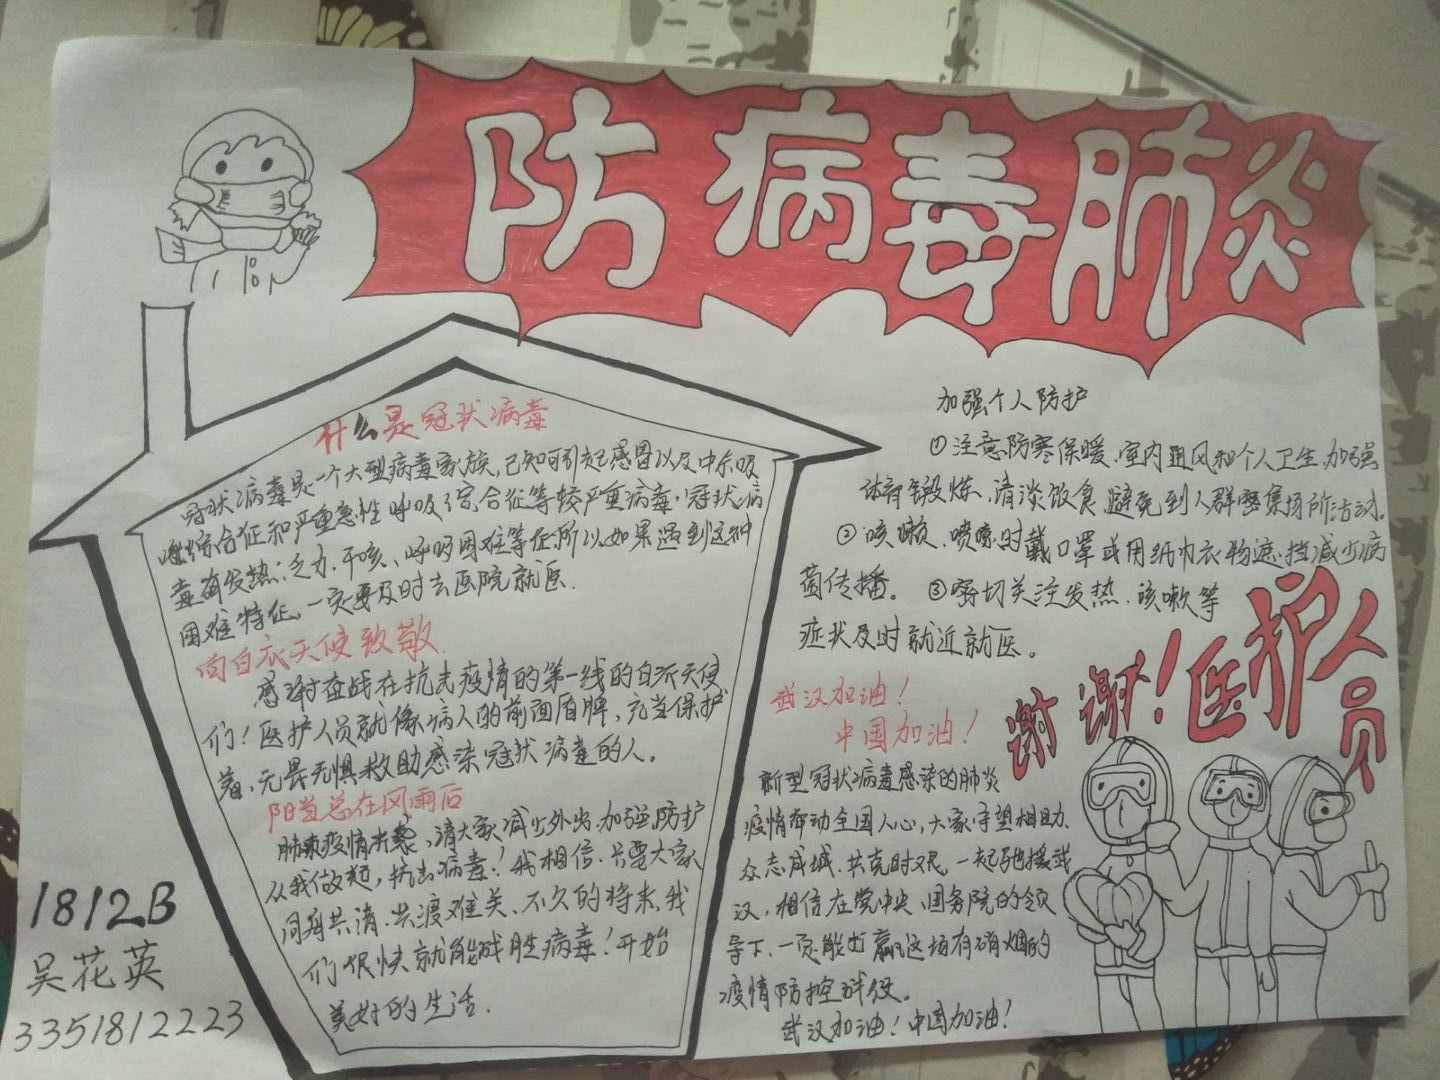 防病毒肺炎
什么是冠状病毒
冠状病毒是一个大型病毒家族,已知可引起感冒以及中东呼
吸综合征和严重急性呼吸综合征等较严重病毒,冠状病
毒有发热;乏力、干咳、呼吸困难等症所以如果遇到这种
困难特征,一定要及时去医院就医.
向白衣天使致敬
感谢奋战在抗击疫情的第一线的白衣天使
们!医护人员就像病人的前面盾牌,充当保护
着,无畏无惧救助感染冠状病毒的人。
阳光总在风雨后
肺炎疫情来袭,请大家减少外出,加强防护
从我做起,抗击病毒!我相信,只要大家人
同舟共济,共渡难关、不久的将来,我
们很快就能战胜病毒!开始
美好的生活.
1812B
吴花英
3351812223
加强个人防护
①注意防寒保暖、室内通风和个人卫生、加强
体育锻炼、清淡饮食、避免到人群密集场所活动.
②咳嗽、喷嚏时戴口罩或用纸巾衣物遮挡减少病
菌传播。③密切关注发热、咳嗽等
症状及时就近就医。
武汉加油!
中国加油!
谢谢!医护人员
新型冠状病毒感染的肺炎
疫情牵动全国人心,大家守望相助、
众志成城、共克时艰、一起驰援武
汉,相信在党中央、国务院的领
导下,一定能打赢这场有硝烟的
疫情防控战役。
武汉加油!中国加油!